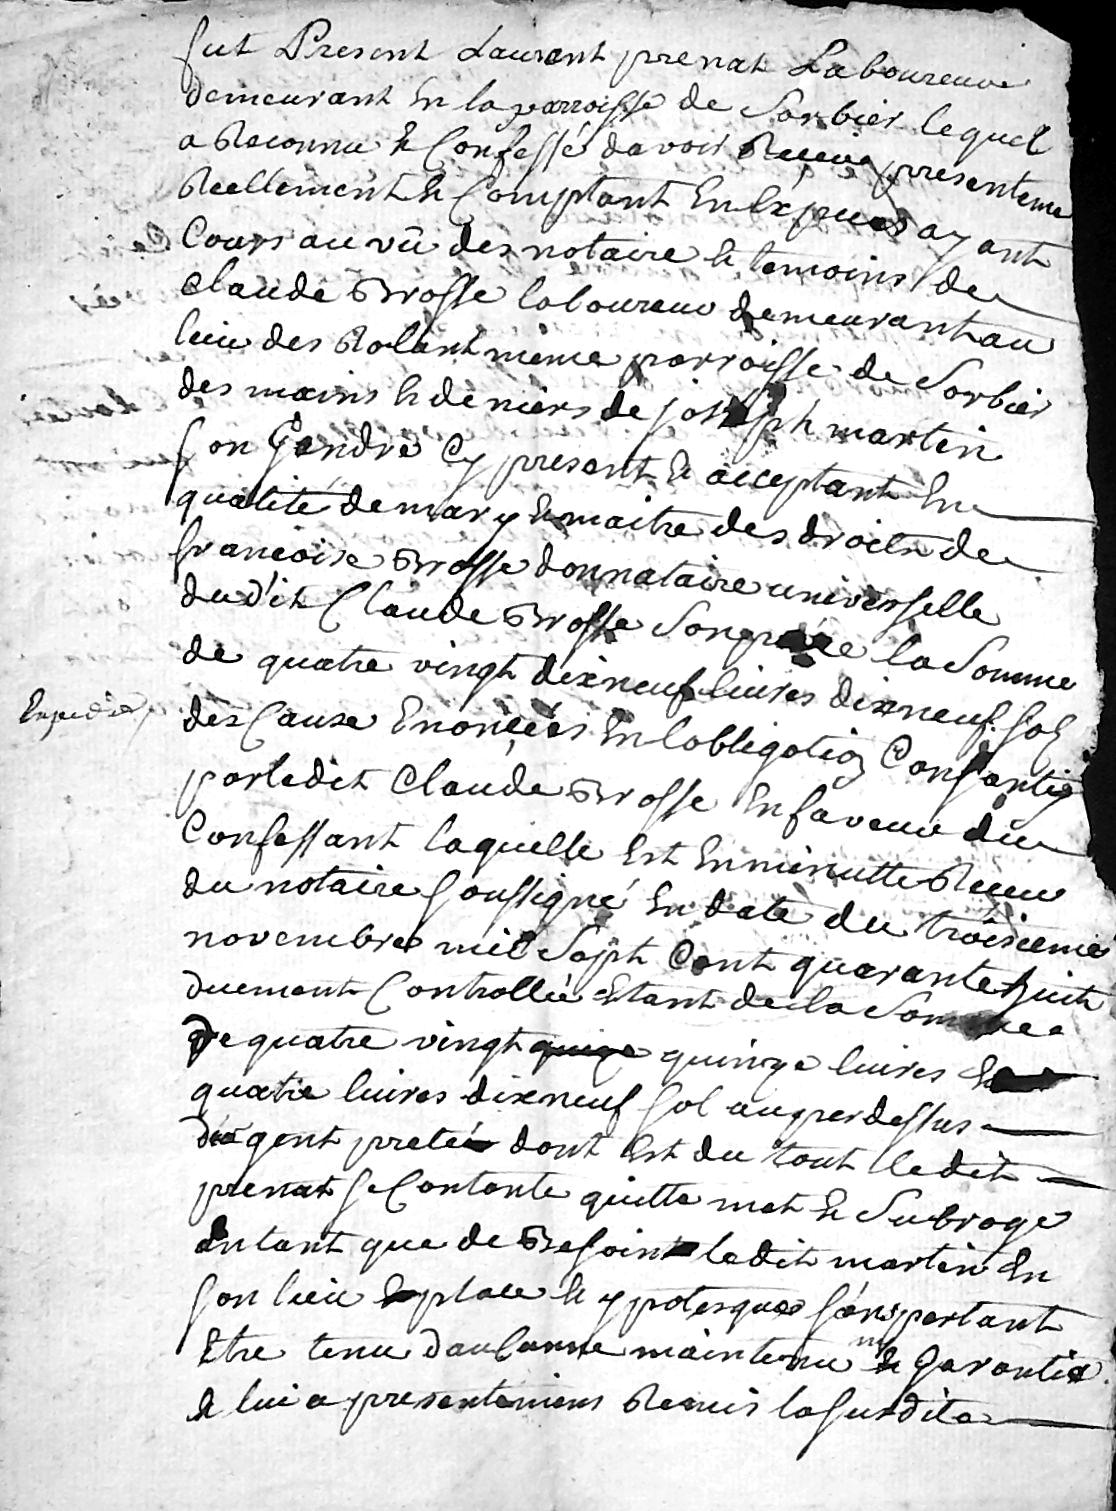 fut Present Laurent prenat Laboureur
demeurant En la parroisse de Sorbier lequel
a Reconnu & Confessé davoir Receue presenteme
Reellement & Comptant En Espece ayant
Cours au vû des notaire & temoins de
Claude Brosse laboureur demeurant au
lieu des Rolant meme parroisse de Sorbier
des mains & deniers de joseph martin
son Gendre Cy present & acceptant En
qualité de mary & maitre des droits de
francoise Brosse donnataire universselle
dudit Claude Brosse Son pere la Somme
de quatre vingt dixneuf livres dixneuf sol
Expedié
des Cause Enoncées En lobligation Consantie
par ledit Claude Brosse En faveur du
Confessant laquelle Est En minutte Receue
du notaire soussigné En date du troisieme
novembre mil Sept Cent quarante huit
duement Controllée Etant de la Somme
De quatre vingt quinze quinze livres &
quatre livres dixneuf sol au per dessus
dargent preté dont Est du tout ledit
prenat se Contente quitte met & Subroge
En tant que de Besoint ledit martin En
son lieu & place & ypotesques sans pertant
Etre tenu daucunne maintenu ny & Garantie
& lui a presentemens Remis la susdite